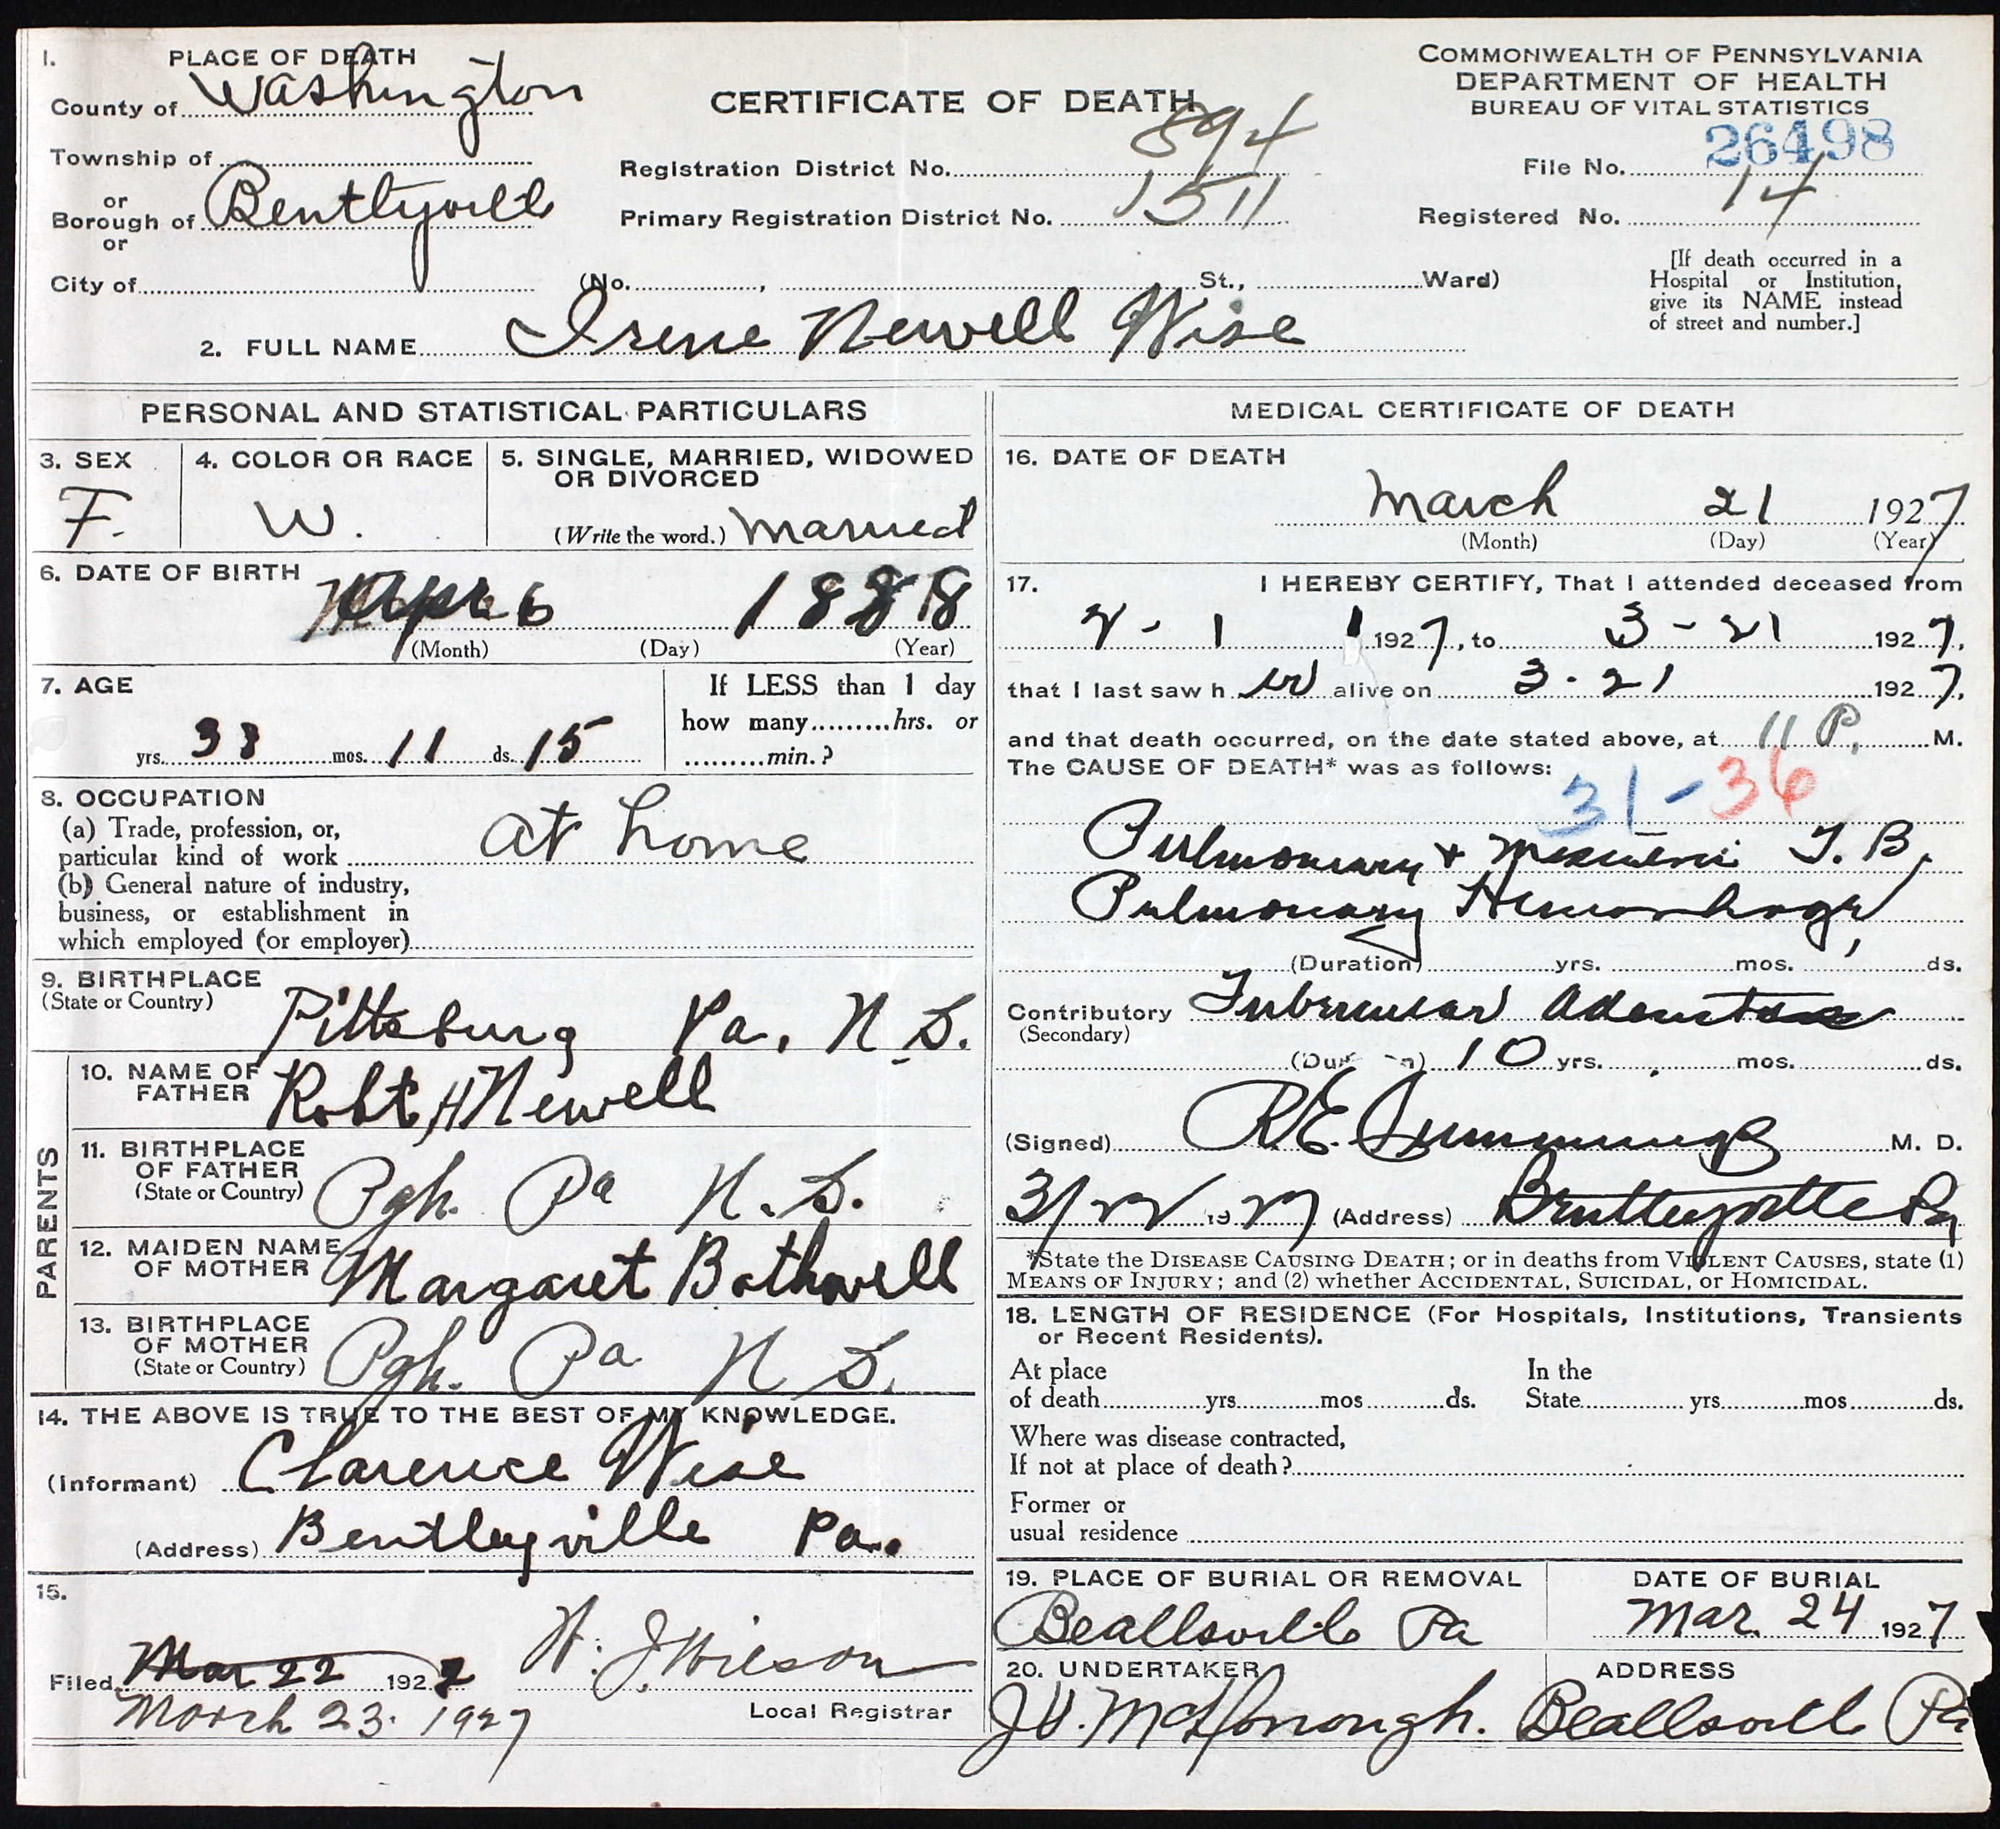 1. PLACE OF DEATH
County of Washington
Township of
or
Borough of Bentleyville
or
City of
CERTIFICATE OF DEATH
Registration District No. 894
Primary Registration District No. 1511
(No. , St., Ward)
COMMONWEALTH OF PENNSYLVANIA
DEPARTMENT OF HEALTH
BUREAU OF VITAL STATISTICS
File No. 26498
Registered No. 14
[If death occurred in a
Hospital or Institution,
give its NAME instead
of street and number.]
2. FULL NAME Irene Newell Wise
PERSONAL AND STATISTICAL PARTICULARS
3. SEX
F.
4. COLOR OR RACE
W.
5. SINGLE, MARRIED, WIDOWED
OR DIVORCED
(Write the word.) Married
6. DATE OF BIRTH
Apr 6 1888
(Month) (Day) (Year)
7. AGE
yrs. 38 mos. 11 ds. 15
If LESS than 1 day
how many hrs. or
min.?
8. OCCUPATION
(a) Trade, profession, or,
particular kind of work at home
(b) General nature of industry,
business, or establishment in
which employed (or employer)
9. BIRTHPLACE
(State or Country)
Pittsburg Pa. N.S.
PARENTS
10. NAME OF
FATHER Robt H Newell
11. BIRTHPLACE
OF FATHER
(State or Country) Pgh. Pa N.S.
12. MAIDEN NAME
OF MOTHER Margaret Bothwell
13. BIRTHPLACE
OF MOTHER
(State or Country) Pgh. Pa N S.
14. THE ABOVE IS TRUE TO THE BEST OF MY KNOWLEDGE.
(Informant) Clarence Wise
(Address) Bentleyville Pa.
15.
Filed Mar 22 192
March 23. 1927
Wilson
Local Registrar
MEDICAL CERTIFICATE OF DEATH
16. DATE OF DEATH
March 21 1927
(Month) (Day) (Year)
17. I HEREBY CERTIFY, That I attended deceased from
2-1 1927, to 3-21 1927,
that I last saw her alive on 3-21 1927,
and that death occurred, on the date stated above, at 11 P. M.
The CAUSE OF DEATH* was as follows:
31-36
Pulmonary + T.B.
Pulmonary Hemorhage
(Duration) yrs. mos. ds.
Contributory Tubercular
(Secondary)
(Du n) 10 yrs. mos. ds.
(Signed) R.E. M. D.
3/22 1927 (Address) Bentleyville Pa
*State the DISEASE CAUSING DEATH; or in deaths from VIOLENT CAUSES, state (1)
MEANS OF INJURY; and (2) whether ACCIDENTAL, SUICIDAL, or HOMICIDAL.
18. LENGTH OF RESIDENCE (For Hospitals, Institutions, Transients
or Recent Residents).
At place
of death yrs. mos ds.
In the
State yrs. mos ds.
Where was disease contracted,
If not at place of death?
Former or
usual residence
19. PLACE OF BURIAL OR REMOVAL
Beallsville Pa
DATE OF BURIAL
Mar. 24 1927
20. UNDERTAKER
McDonough.
ADDRESS
Beallsville Pa